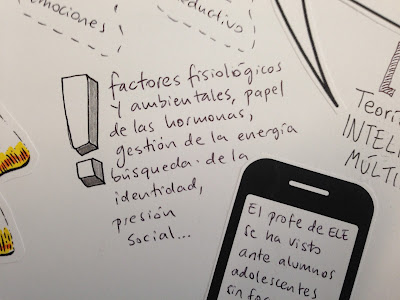 emociones
ductivo
factores fisiológicos
y ambientales, papel
de las hormonas,
gestión de la energía
búsqueda de la
identidad,
presión
social...
Teorí
INTELI
MÚLTI
El profe de ELE
se ha visto
ante alumnos
adolescentes